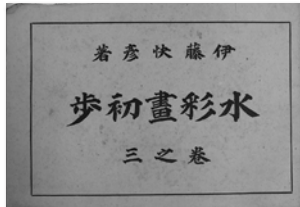 伊藤快彥著
水彩畫初歩
卷之三